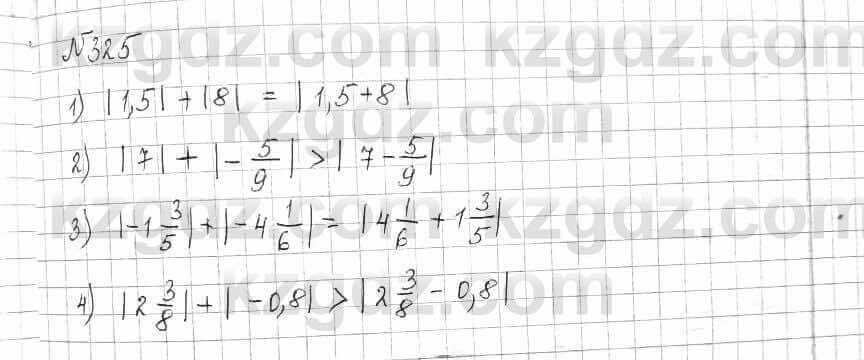 kzgdz.com kzgdz.com
№325
1) |1,5| + |8| = |1,5+8|
kzgdz.com
2) |7| + |-5/9| > |7 - 5/9|
3) |-1 3/5| + |-4 1/6| = |4 1/6 + 1 3/5|
kzgdz.com kzgdz.com
4) |2 3/8| + |-0,8| > |2 3/8 - 0,8|
kzgdz.com